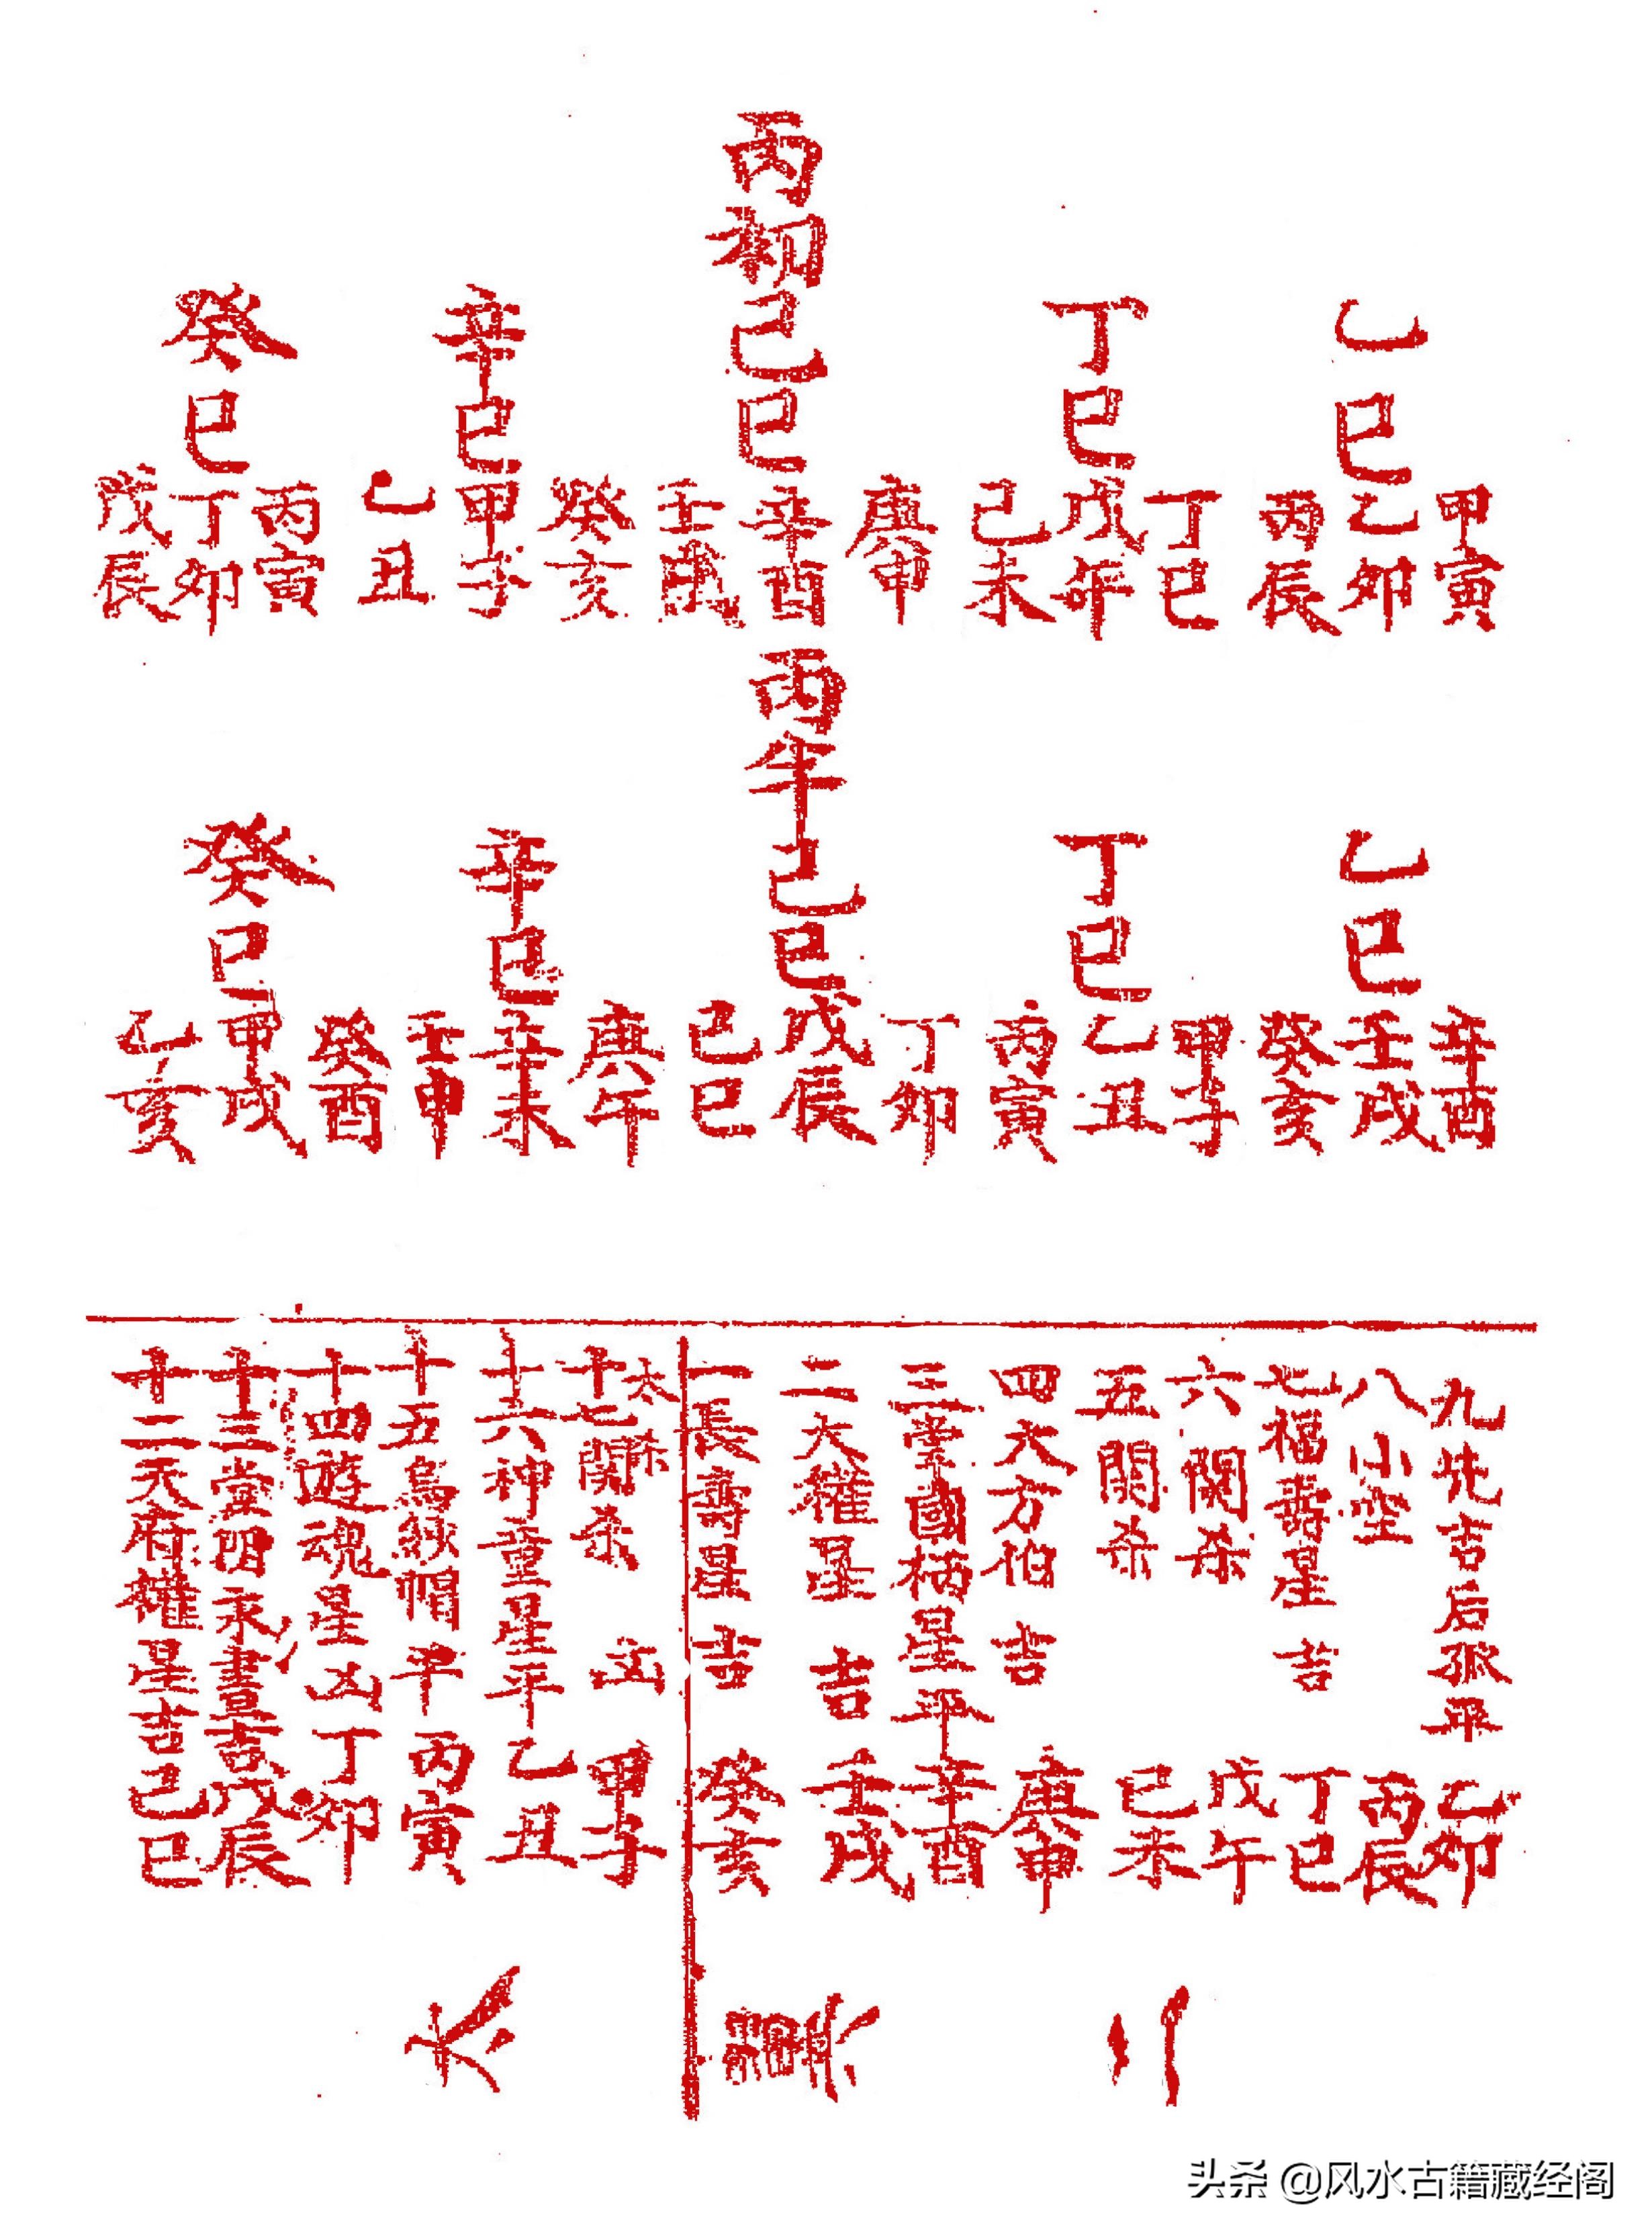 丙初
乙巳
丁巳
己巳
辛巳
癸巳
甲寅
乙卯
丙辰
丁巳
戊午
己未
庚申
辛酉
壬戌
癸亥
甲子
乙丑
丙寅
丁卯
戊辰
丙年
乙巳
丁巳
己巳
辛巳
癸巳
辛酉
壬戌
癸亥
甲子
乙丑
丙寅
丁卯
戊辰
己巳
庚午
辛未
壬申
癸酉
甲戌
乙亥
九先吉后孤平 乙卯
八小空 丙辰
七福壽星 吉 丁巳
六関杀 戊午
五関杀 己未
四大方伯 吉 庚申
三掌國柄星平 辛酉
二大權星 吉 壬戌
一長壽星 吉 癸亥
太杀
十七関杀 凶 甲子
十六神童星平 乙丑
十五烏紗帽 平 丙寅
十四遊魂星凶 丁卯
十三堂 吉 戊辰
十二天府權星吉 己巳
头条 @风水古籍藏经阁